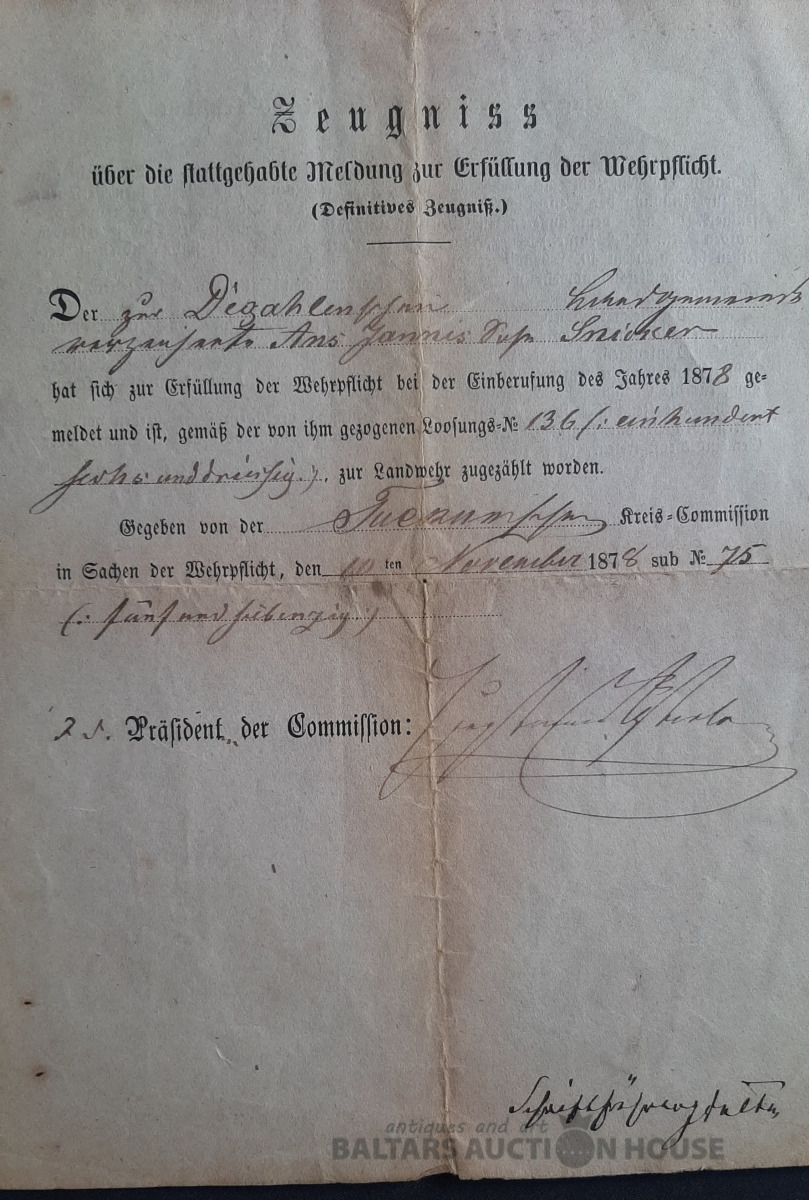 Zeugniss
über die stattgehabte Meldung zur Erfüllung der Wehrpflicht.
(Definitives Zeugniß.)
Der zur Degahlenschen Landgemeinde
verzeichnete Ans Jannis Sohn
hat sich zur Erfüllung der Wehrpflicht bei der Einberufung des Jahres 1878 ge=
meldet und ist, gemäß der von ihm gezogenen Loosungs=№ 136 (: einhundert
sechs und dreissig.), zur Landwehr zugezählt worden.
Gegeben von der Kreis=Commission
in Sachen der Wehrpflicht, den 10ten November 1878 sub № 75
(: fünf und siebenzig :)
Präsident der Commission:
Schriftführer
antiques and art
BALTARS AUCTION HOUSE